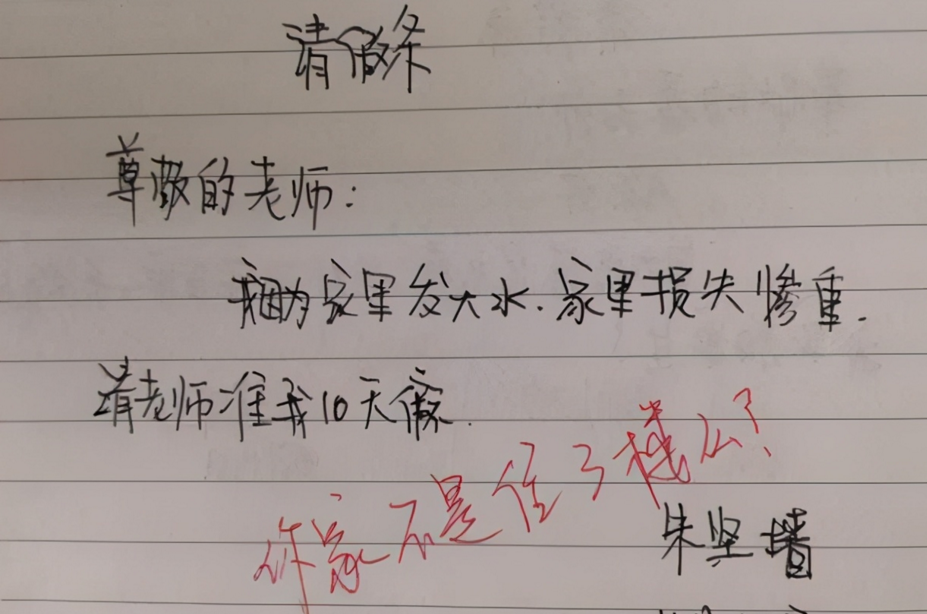 请假条
尊敬的老师:
我因为家里发大水.家里损失惨重.
请老师准我10天假.
你家不是住3楼么?
朱坚墙